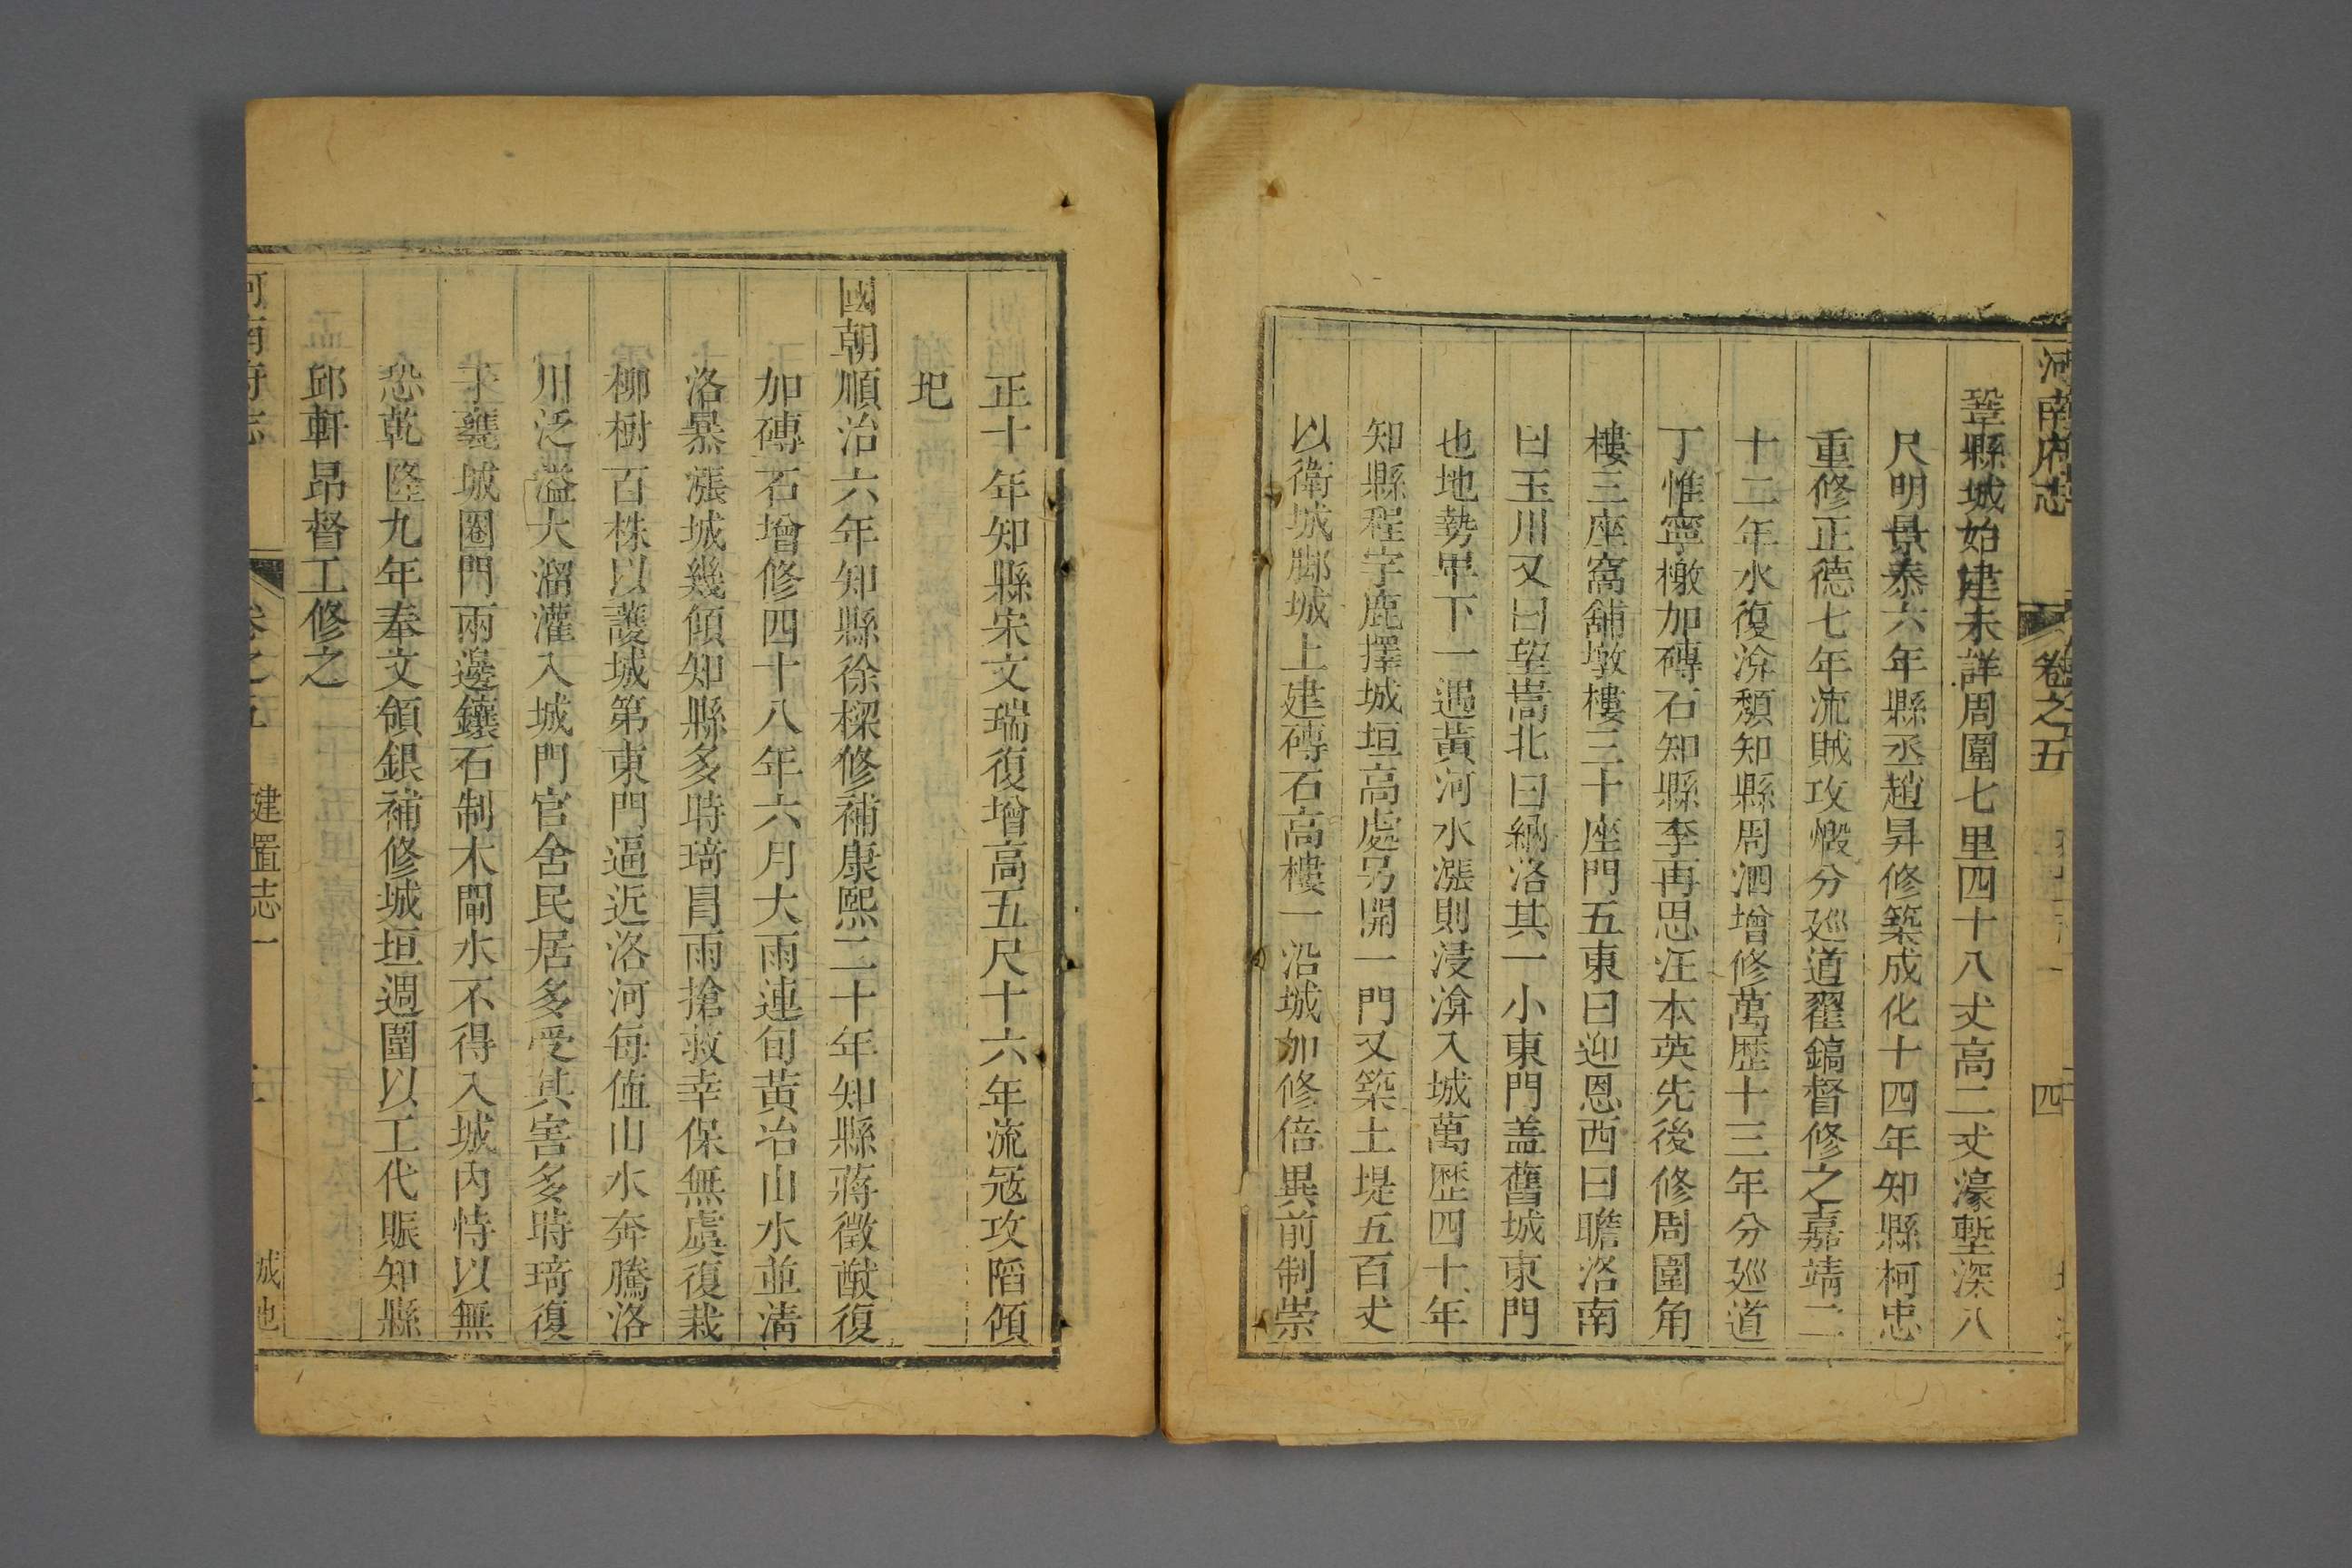 河南府志 卷之五 四
鞏縣城始建未詳周圍七里四十八丈高二丈濠塹深八
尺明景泰六年縣丞趙昇修築成化十四年知縣柯忠
重修正德七年流賊攻燬分廵道翟鎬督修之嘉靖二
十二年水復渰頽知縣周泗增修萬歷十三年分廵道
丁惟寧檄加磚石知縣李再思汪本英先後修周圍角
樓三座窩舖墩樓三十座門五東曰迎恩西曰瞻洛南
曰玉川又曰望嵩北曰納洛其一小東門盖舊城東門
也地勢卑下一遇黃河水漲則浸渰入城萬歷四十年
知縣程宇鹿擇城垣高處另開一門又築土堤五百丈
以衛城郷城上建磚石高樓一沿城加修倍異前制崇
正十年知縣宋文瑞復增高五尺十六年流冦攻䧟傾
圯
國朝順治六年知縣徐樑修補康熙二十年知縣蔣徵猷復
加磚石增修四十八年六月大雨連旬黃冶山水並溝
洛暴漲城幾傾知縣多時琦冒雨搶救幸保無虞復栽
柳樹百株以護城第東門逼近洛河每值山水奔騰洛
川泛溢大溜灌入城門官舍民居多受其害多時琦復
于甕城圈門兩邊鑲石制木閘水不得入城內恃以無
恐乾隆九年奉文領銀補修城垣週圍以工代賑知縣
邱軒昂督工修之
河南府志 卷之五 建置志一 城池